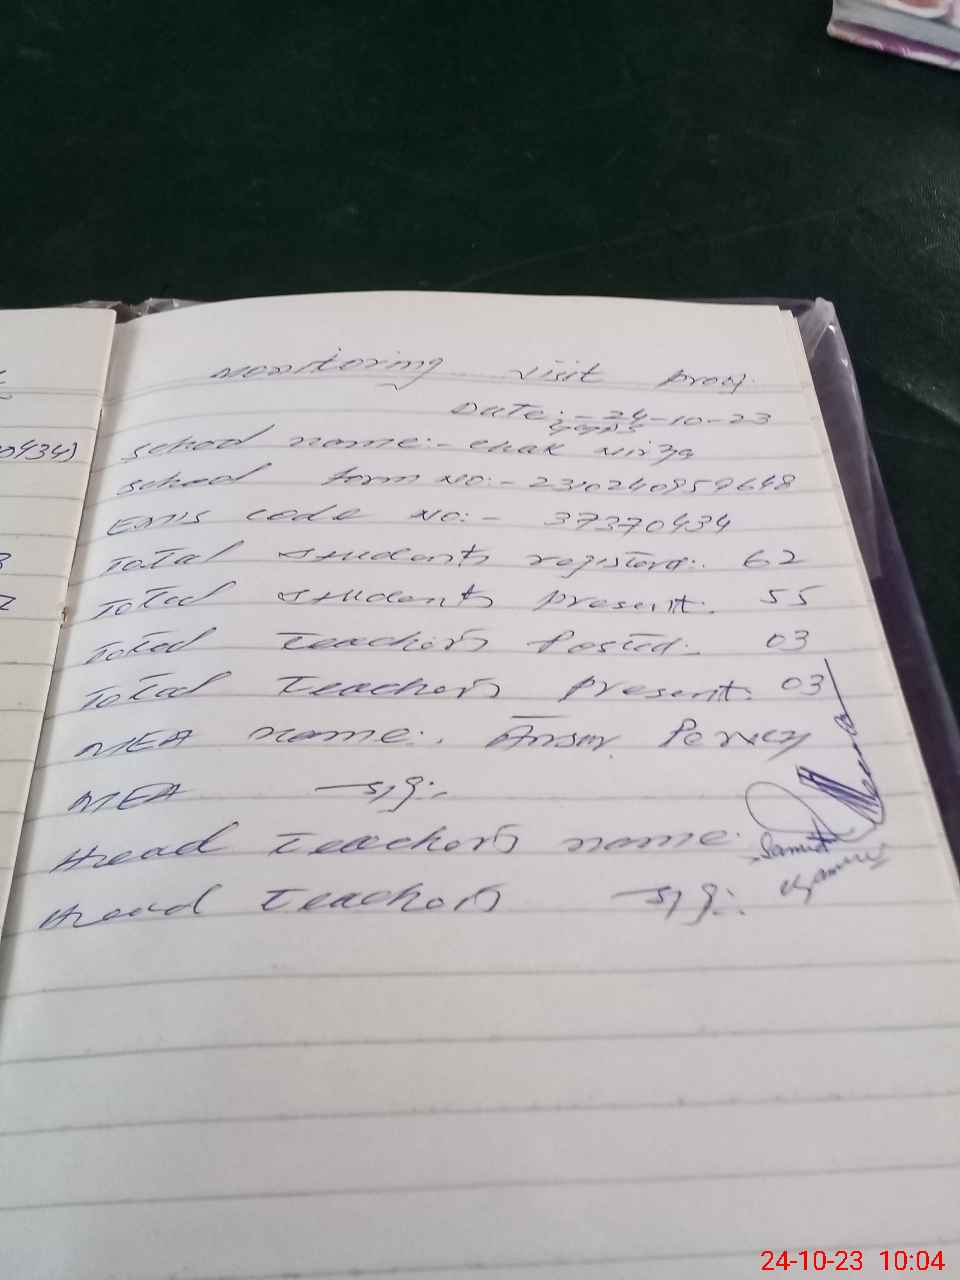 Monitoring visit proof
Date:- 24-10-23
GGPS
0434)
school name:- Chak Mirza
school form No:- 2310240959648
EMIS code No:- 37370434
Total students registerd:. 62
Total students present:. 55
Total Teachers Posted:. 03
Total Teachers Present:. 03
MEA name:. Ansar Pervez
MEA sig:.
Head Teachers name:
Samina
Head Teachers sig:.
24-10-23 10:04